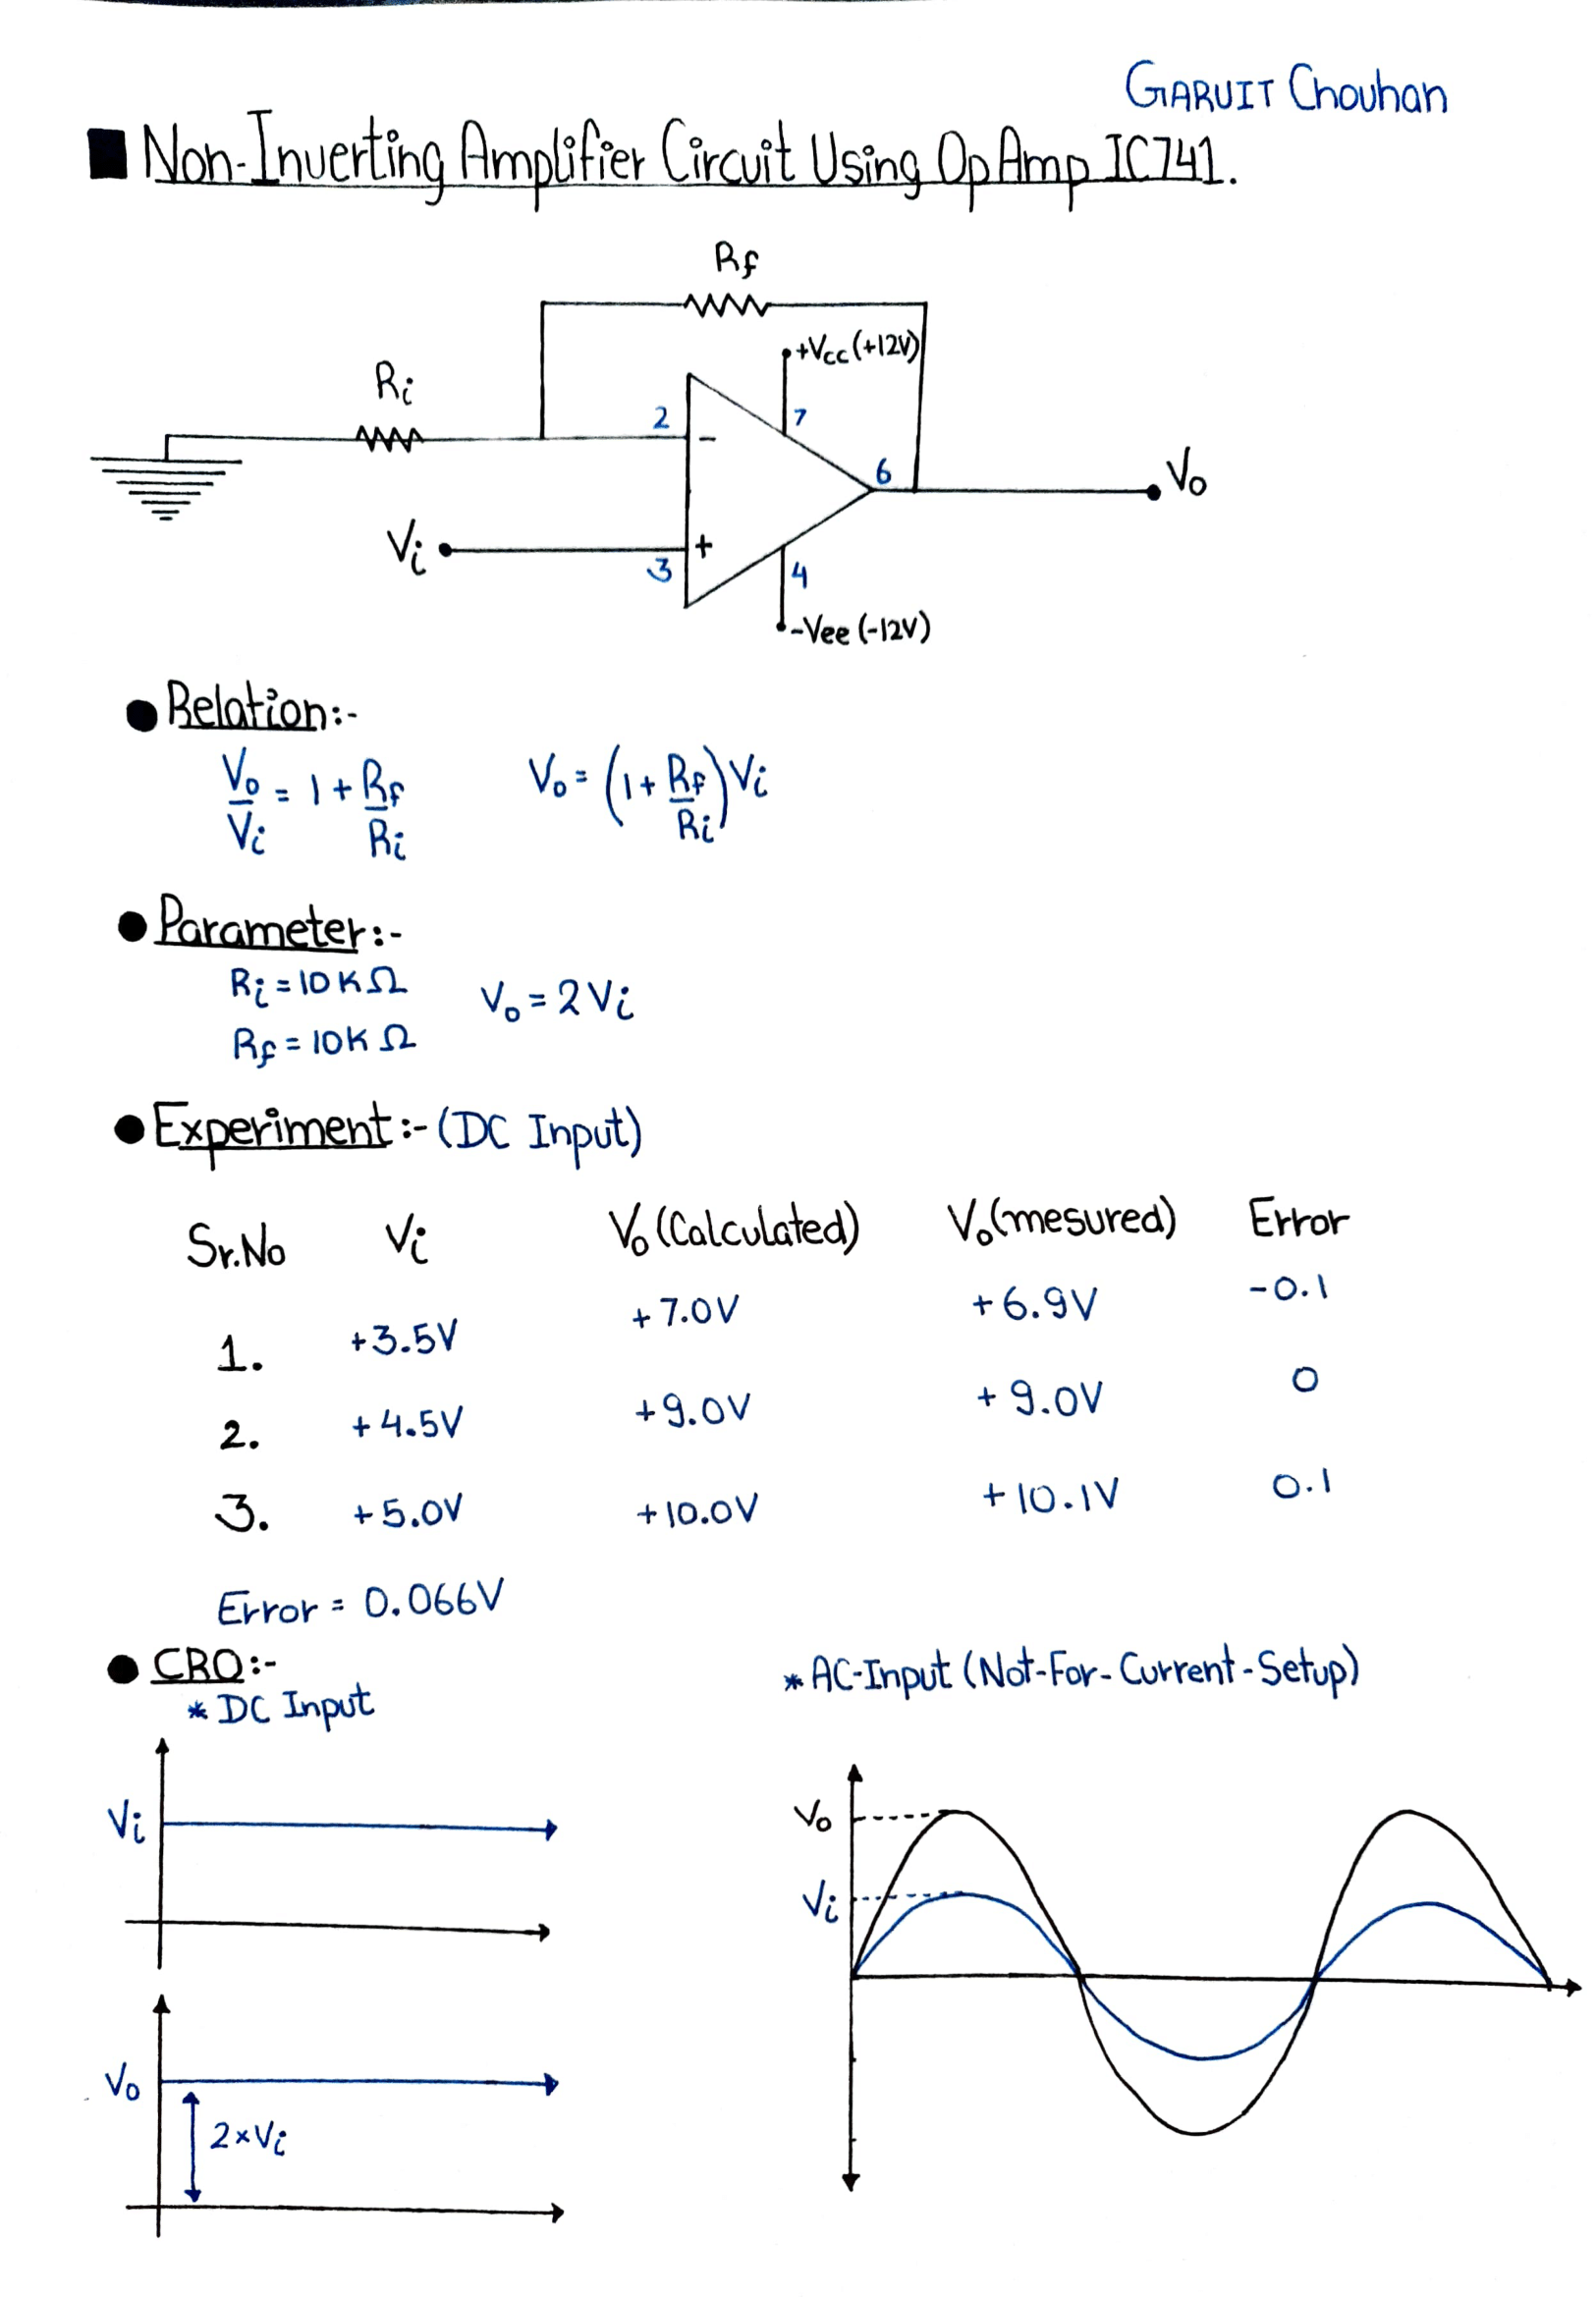 GARUIT Chouhan
Non-Inverting Amplifier Circuit Using OpAmp IC741.
Rf
+Vcc (+12V)
Ri
2
7
-
6
Vo
Vi
+
3
4
-Vee (-12V)
Relation:-
Vo/Vi = 1 + Rf/Ri    Vo = (1 + Rf/Ri) Vi
Parameter:-
Ri = 10KΩ    Vo = 2Vi
Rf = 10KΩ
Experiment:- (DC Input)
Sr.No    Vi    Vo (Calculated)    Vo (mesured)    Error
1.    +3.5V    +7.0V    +6.9V    -0.1
2.    +4.5V    +9.0V    +9.0V    0
3.    +5.0V    +10.0V    +10.1V    0.1
Error = 0.066V
CRO:-
* DC Input
* AC-Input (Not-For-Current-Setup)
Vi
Vo
2×Vi
Vo
Vi